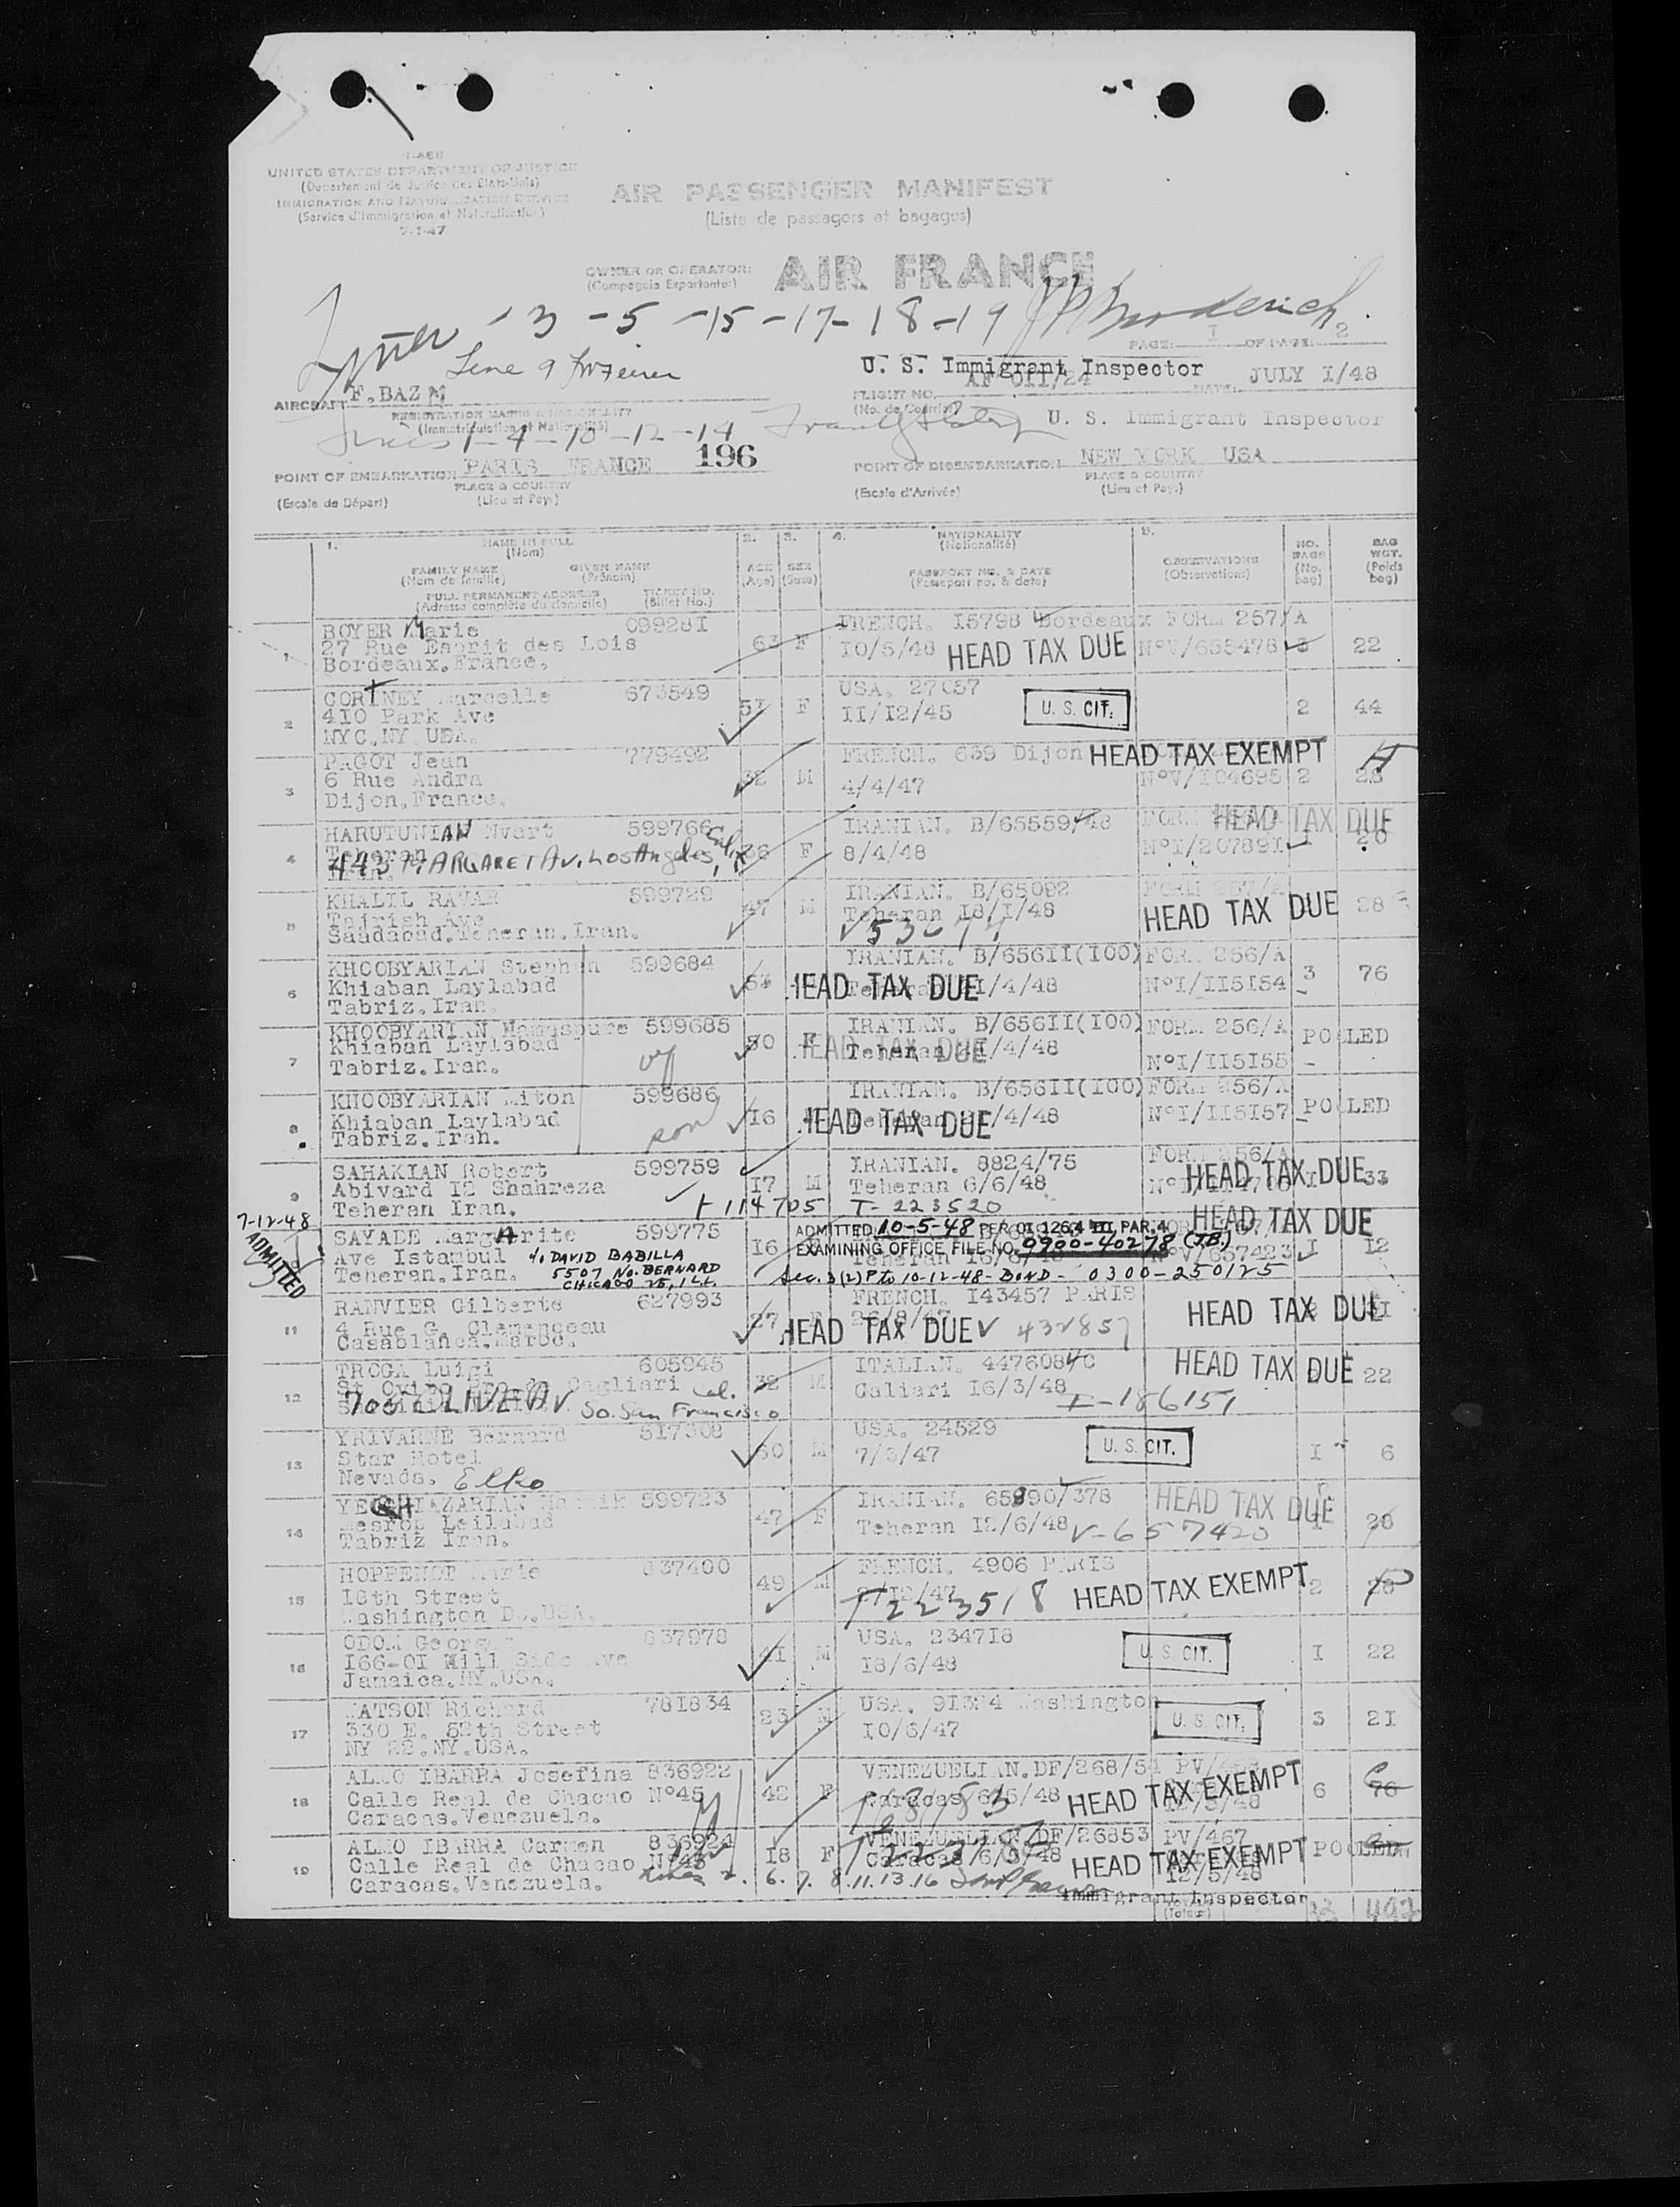 I-466
UNITED STATES DEPARTMENT OF JUSTICE
(Departement de Justice des Etats-Unis)
IMMIGRATION AND NATURALIZATION SERVICE
(Service d'Immigration et Naturalisation)
7-1-47
AIR PASSENGER MANIFEST
(Liste de passagers et bagages)
OWNER OR OPERATOR:
(Compagnie Exportante:)
AIR FRANCE
- 3 - 5 - 15 - 17 - 18 - 19
PAGE: I OF PAGE: 2
Line 9
U. S. Immigrant Inspector
AIRCRAFT F.BAZM
REGISTRATION MARKS & NATIONALITY
(Immatriculation et Nationalité)
FLIGHT NO. AF 011/24
(No. de Courrier)
DATE: JULY I/48
1 - 4 - 10 - 12 - 14
U. S. Immigrant Inspector
POINT OF EMBARKATION PARIS FRANCE 196
PLACE & COUNTRY
(Escale de Départ) (Lieu et Pays)
POINT OF DISEMBARKATION NEW YORK USA
PLACE & COUNTRY
(Escale d'Arrivée) (Lieu et Pays)
1. NAME IN FULL
(Nom)
FAMILY NAME GIVEN NAME
(Nom de famille) (Prénom)
FULL PERMANENT ADDRESS TICKET NO.
(Adresse complète du domicile) (Billet No.)
2. AGE
(Age)
3. SEX
(Sexe)
4. NATIONALITY
(Nationalité)
PASSPORT NO. & DATE
(Passeport no. & date)
9. OBSERVATIONS
(Observations)
NO. BAGS
(No. bag)
BAG WGT.
(Poids bag)
1 BOYER Marie 099281 63 F FRENCH. I5798 Bordeaux FORM 257/A
27 Rue Esprit des Lois 10/5/48 HEAD TAX DUE N°V/655478 3 22
Bordeaux.France.
2 CORTNEY Marcelle 673549 51 F USA. 27057
410 Park Ave II/I2/45 U. S. CIT. 2 44
NYC.NY.USA.
3 PAGOT Jean 779492 32 M FRENCH. 639 Dijon HEAD TAX EXEMPT
6 Rue Andra 4/4/47 N°V/I04695 2
Dijon.France.
4 HARUTUNIAN Nvart 599766 36 F IRANIAN. B/65559/48 FORM HEAD TAX DUE
Teheran 8/4/48 N°I/207891 I 20
443 MARGARET AV. Los Angeles,
Iran.
5 KHALIL RAVAR 599729 47 M IRANIAN. B/65092 FORM 257/A
Tajrish Ave Teheran I8/I/48 HEAD TAX DUE 28
Saadabad.Teheran.Iran.
6 KHOOBYARIAN Stephen 599684 IRANIAN. B/656II(I00) FORM 256/A
Khiaban Laylabad HEAD TAX DUE /4/48 N°I/II5I54 3 76
Tabriz.Iran.
7 KHOOBYARIAN 599685 50 F IRANIAN. B/656II(I00) FORM 256/A
Khiaban Laylabad HEAD TAX DUE Teheran /4/48 N°I/II5I55 POOLED
Tabriz.Iran. wf
8 KHOOBYARIAN Miton 599686 I6 IRANIAN. B/656II(I00) FORM 256/A
Khiaban Laylabad HEAD TAX DUE /4/48 N°I/II5I57 POOLED
Tabriz.Iran. son
9 SAHAKIAN Robert 599759 I7 M IRANIAN. 8824/75 FORM 256/A
Abivard I2 Shahreza Teheran 6/6/48 HEAD TAX DUE 33
Teheran Iran. + 114705 T-223520
7-12-48
ADMITTED
SAYADE Margarite 599775 I6 HEAD TAX DUE
ADMITTED 10-5-48 PER OI 126.4 III, PAR. 4
Ave Istambul EXAMINING OFFICE FILE NO. 0900-40278 (J.B.)
Teheran.Iran. Teheran I6/6/48 N°V/657423 I I2
% DAVID BABILLA
5507 No. BERNARD
CHICAGO 25, ILL.
Sec. 3(2) P to 10-12-48 - BOND - 0300-250125
11 RANVIER Gilberte 627993 27 F FRENCH. I43457 PARIS
4 Rue G. Clemenceau 26/8/47 HEAD TAX DUE
Casablanca.Maroc. HEAD TAX DUE V 432857
12 TROGA Luigi 605945 32 M ITALIAN. 4476084C HEAD TAX DUE 22
Cagliari Caliari I6/3/48
So. San Francisco Cal. I-186151
13 YRIVARNE Bernard 517308 50 M USA. 24529
Star Hotel 7/3/47 U. S. CIT. I 6
Nevada. Elko
14 YEGHIAZARIAN 599723 47 F IRANIAN. 65890/378 HEAD TAX DUE
Mesrop Leilabad Teheran I2/6/48 V-657420 I 20
Tabriz Iran.
15 HOPPENOT 837400 49 M FRENCH. 4906 PARIS
I6th Street 2/I2/47 HEAD TAX EXEMPT 2
Washington DC.USA. T 223518
16 ODOM George 837978 41 M USA. 234718
I66-0I Hill Side Ave 18/6/48 U. S. CIT. I 22
Jamaica.NY.USA.
17 WATSON Richard 781834 23 M USA. 91374 Washington
330 E. 52th Street 10/6/47 U. S. CIT. 3 2I
NY 22.NY.USA.
18 ALMO IBARRA Josefina 836922 42 F VENEZUELIAN.DF/268/54 PV/
Calle Real de Chacao N°45 Caracas 6/5/48 HEAD TAX EXEMPT 6 76
Caracas.Venezuela. 12/5/48
19 ALMO IBARRA Carmen 836924 I8 F VENEZUELIAN/DF/26853 PV/467
Calle Real de Chacao N°45 Caracas 6/5/48 HEAD TAX EXEMPT POOLED
Caracas.Venezuela. 12/5/48
Lines 2. 6. 7. 8. 11. 13. 16
Immigrant Inspector
(Totaux)